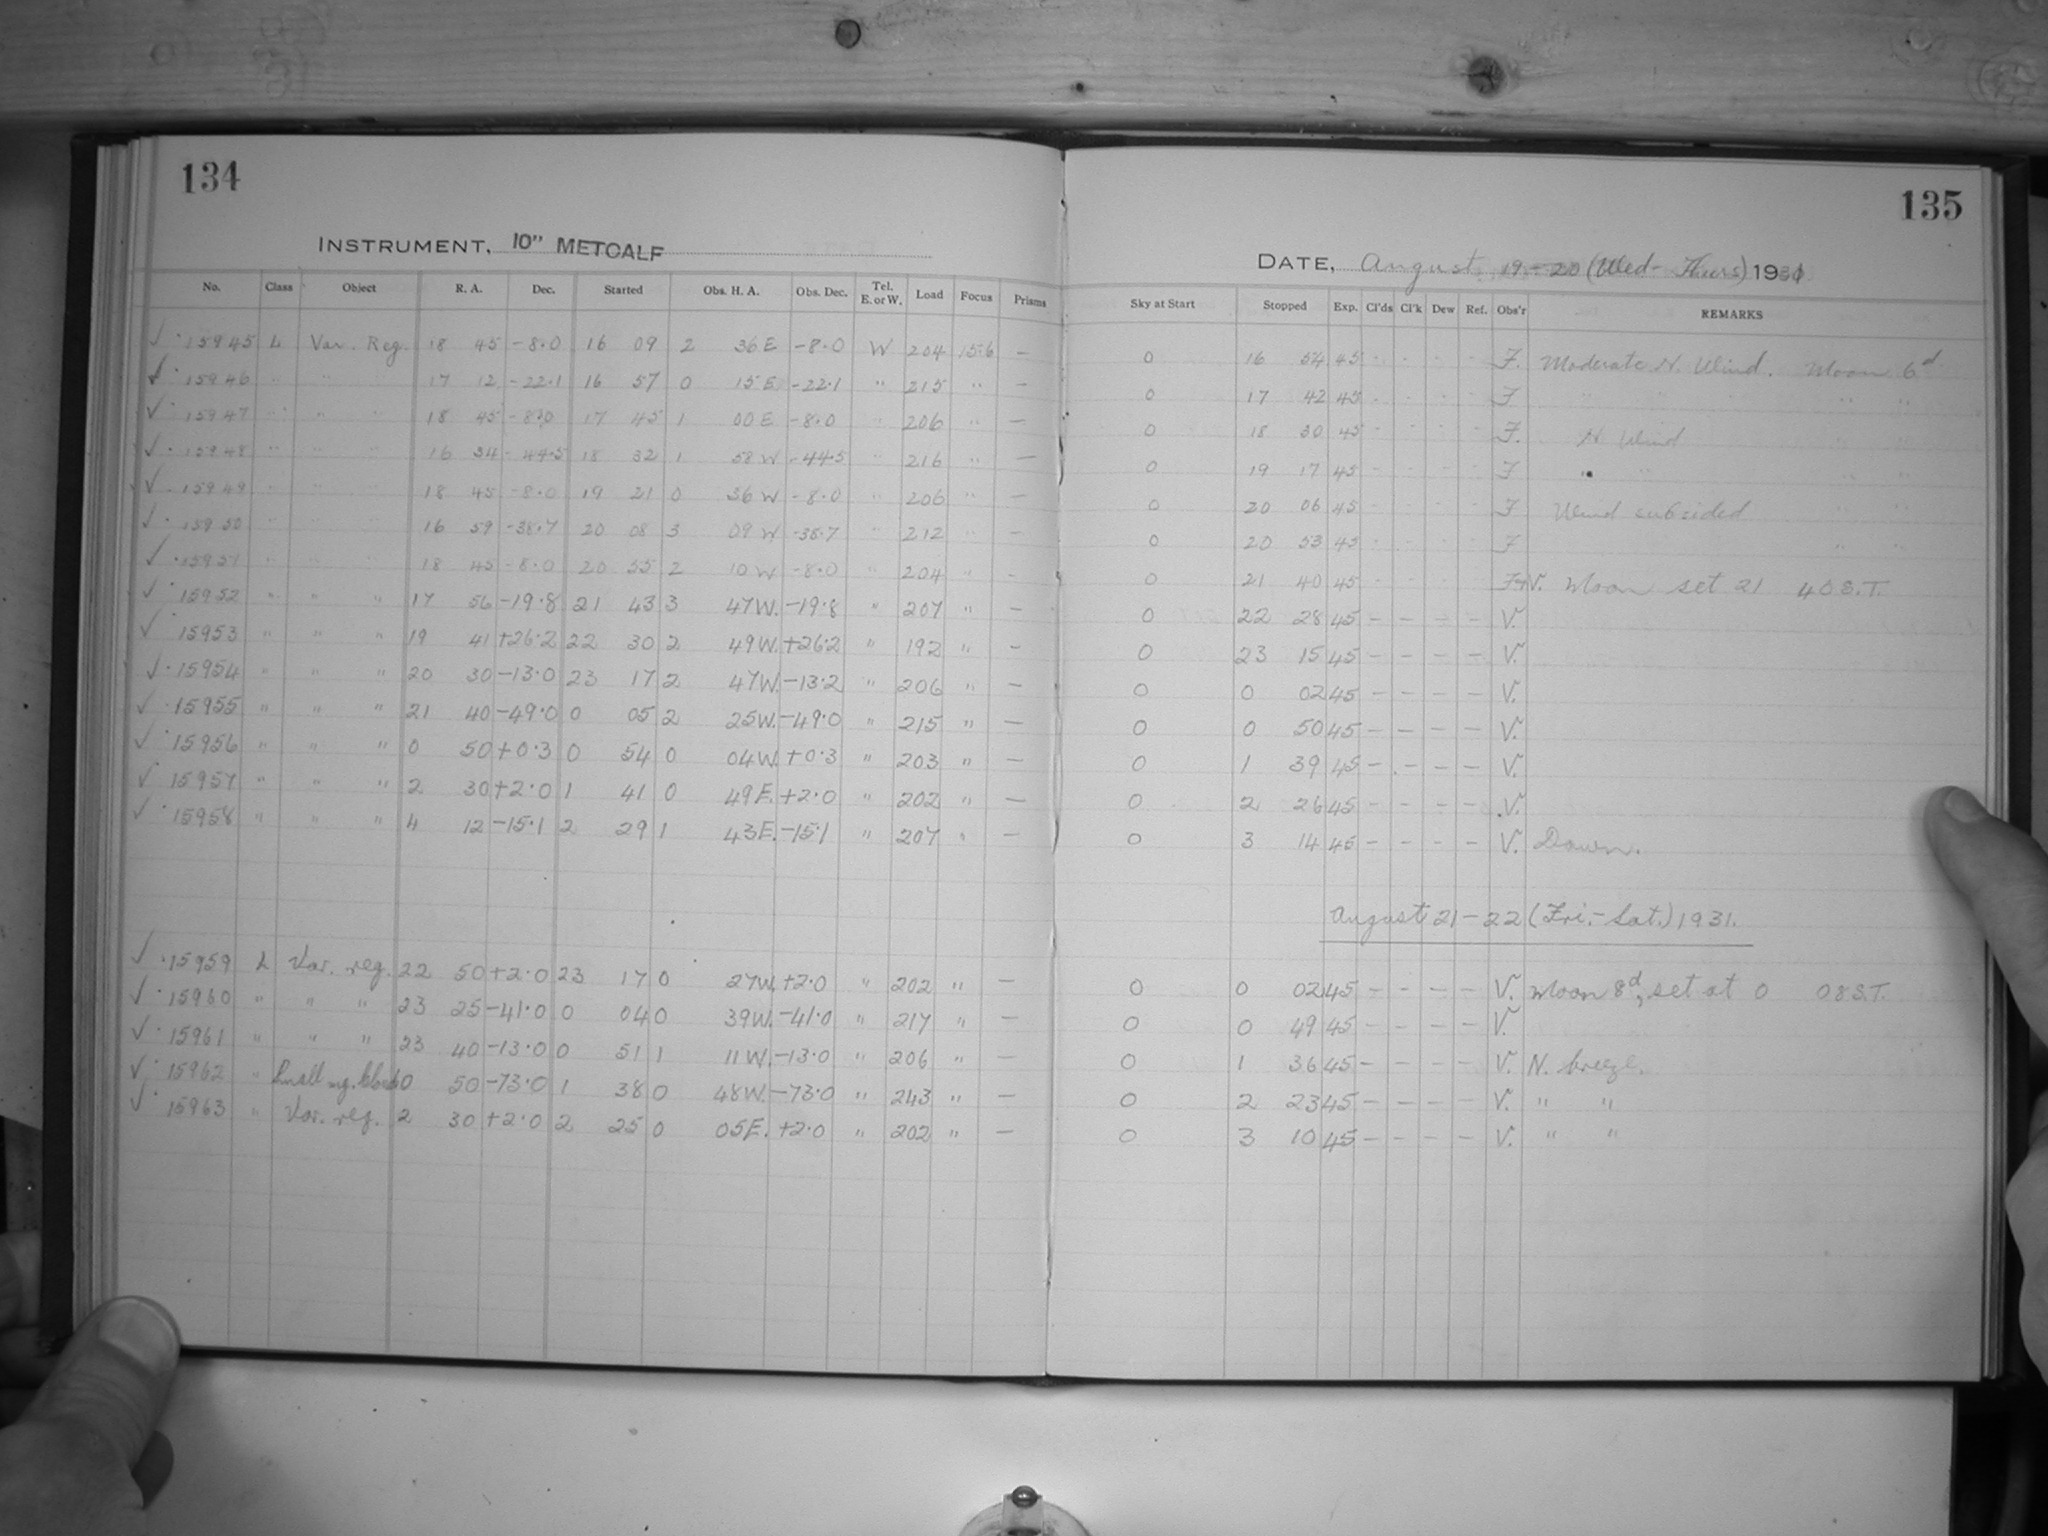 134
INSTRUMENT, 10" METCALF
No. Class Object R. A. Dec. Started Obs. H. A. Obs. Dec. Tel. E. or W. Load Focus Prisms
✓ 15945 L Var. Reg. 18 45 -8.0 16 09 2 36 E -8.0 W 204 15.6 —
15946 " " " 17 12 -22.1 16 57 0 15 E -22.1 " 215 " —
✓ 15947 " " " 18 45 -8.0 17 45 1 00 E -8.0 " 206 " —
✓ 15948 " " " 16 34 -44.5 18 32 1 58 W -44.5 " 216 " —
✓ 15949 " " " 18 45 -8.0 19 21 0 36 W -8.0 " 206 " —
✓ 15950 " " " 16 59 -38.7 20 08 3 09 W -38.7 " 212 " —
✓ 15951 " " " 18 45 -8.0 20 55 2 10 W -8.0 " 204 " —
✓ 15952 " " " 17 56 -19.8 21 43 3 47 W. -19.8 " 207 " —
✓ 15953 " " " 19 41 +26.2 22 30 2 49 W. +26.2 " 192 " —
✓ 15954 " " " 20 30 -13.0 23 17 2 47 W. -13.2 " 206 " —
✓ 15955 " " " 21 40 -49.0 0 05 2 25 W. -49.0 " 215 " —
✓ 15956 " " " 0 50 +0.3 0 54 0 04 W. +0.3 " 203 " —
✓ 15957 " " " 2 30 +2.0 1 41 0 49 E. +2.0 " 202 " —
✓ 15958 " " " 4 12 -15.1 2 29 1 43 E. -15.1 " 207 " —
✓ 15959 L Var. reg. 22 50 +2.0 23 17 0 27 W. +2.0 " 202 " —
✓ 15960 " " " 23 25 -41.0 0 04 0 39 W. -41.0 " 217 " —
✓ 15961 " " " 23 40 -13.0 0 51 1 11 W. -13.0 " 206 " —
✓ 15962 " Small mg. Cloud 0 50 -73.0 1 38 0 48 W. -73.0 " 243 " —
✓ 15963 " Var. reg. 2 30 +2.0 2 25 0 05 E. +2.0 " 202 " —
135
DATE, August 19-20 (Wed-Thurs) 1931
Sky at Start Stopped Exp. Cl'ds Cl'k Dew Ref. Obs'r REMARKS
0 16 54 45 - - - - F. Moderate N. Wind. Moon 6d
0 17 42 45 - - - - F " " " " "
0 18 30 45 - - - - F. N Wind " "
0 19 17 45 - - - - F " " " "
0 20 06 45 - - - - F Wind subsided " "
0 20 53 45 - - - - F " "
0 21 40 45 - - - - F+V. Moon set 21 40 S.T.
0 22 28 45 - - - - V.
0 23 15 45 - - - - V.
0 0 02 45 - - - - V.
0 0 50 45 - - - - V.
0 1 39 45 - - - - V.
0 2 26 45 - - - - V.
0 3 14 45 - - - - V. Dawn.
August 21-22 (Fri.-Sat.) 1931.
0 0 02 45 - - - - V. Moon 8d, set at 0 08 S.T.
0 0 49 45 - - - - V.
0 1 36 45 - - - - V. N. breeze.
0 2 23 45 - - - - V. " "
0 3 10 45 - - - - V. " "